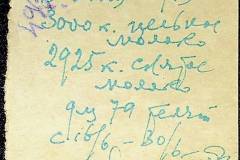 3000 к. цельное
молоко
2925 к. снятое
молоко
для 79 телят
с 16/6 - 30/6